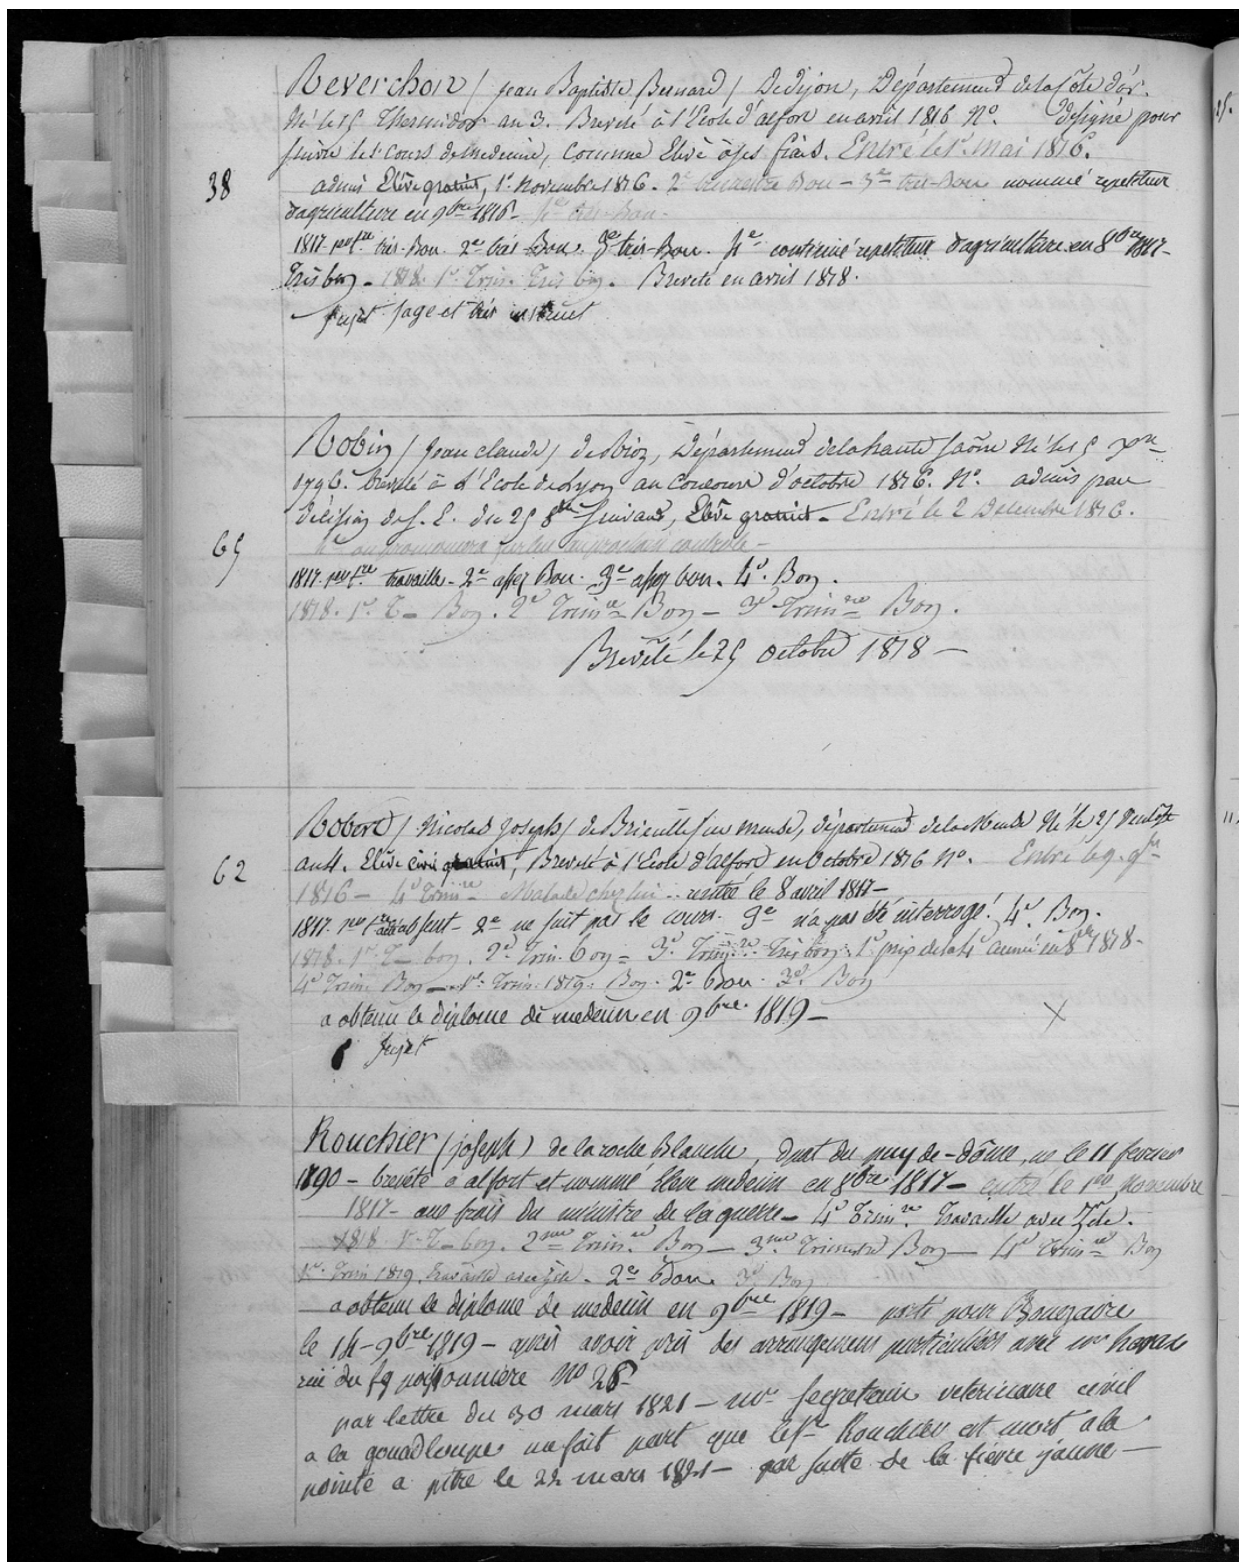 Reverchon / jean Baptiste Bernard / De Dijon, Département de la Côte d'or.
Né le 15 Thermidor an 3. Breveté à l'Ecole d'alfort en avril 1816 N°. désigné pour
suivre les cours de medecine, comme Elève à ses frais. Entré le 1er mai 1816.
38
admis Elève gratuit, 1er Novembre 1816. 2e trimestre Bon - 3e très-Bon nommé repetiteur
d'agriculture en 9bre 1816 - 4e très-Bon.
1817. per tre très-Bon. 2e très Bon. 3e très-Bon. 4e continué repetiteur d'agriculture en 8bre 1817 -
Très bon - 1818. 1er Trim. Très bon. Breveté en avril 1818.
Sujet sage et très instruit
Robin / Jean claude / de Rioz, Département de la haute Saône Né le 15 Xbre
1796. breveté à l'Ecole de Lyon au concours d'octobre 1816. N°. admis par
décision de S. E. du 25 8bre suivant, Elève gratuit - Entré le 2 Decembre 1816.
65
1817. per tre travaille - 2e assez Bon. 3e assez bon. 4e. Bon.
1818. 1er T - Bon. 2e Trimre Bon - 3e Trimre Bon.
Breveté le 25 octobre 1818 -
Robert / Nicolas Joseph / de Brieulle sur meuse, département de la Meuse Né le 25 Ventôse
an 4. Elève civil gratuit, Breveté à l'Ecole d'alfort en Octobre 1816 N°. Entré le 9. 9bre
62
1816 - 4e Trimre Malade chez lui - rentré le 8 avril 1817 -
1817. per tre absent - 2e ne suit pas le cours. 3e n'a pas été interrogé. 4e. Bon.
1818. 1er T - bon. 2e Trim. bon - 3e Trimre Très bon. 1er prix de la 4e année en 8bre 1818 -
4e Trim. Bon - 1er Trim. 1819. Bon. 2e Bon. 3e. Bon
a obtenu le diplome de medecin en 9bre 1819 - X
Sujet
Rouchier (joseph) de la roche Blanche, dpat du puy de-dôme, né le 11 fevrier
1790 - breveté a alfort et nommé élève medecin en 8bre 1817 - entré le 1er Novembre
1817 - aux frais du ministre de la guerre - 4e Trimre. Travaille avec Zèle.
1818 1er T - bon. 2me Trimre Bon - 3me Trimestre Bon - 4e Trimre Bon
1er Trim 1819. travaille avec Zèle - 2e Bon. 3e Bon
a obtenu le diplome de medecin en 9bre 1819 - parti pour
le 14 - 9bre 1819 - après avoir pris des arrangemens particuliers avec mr
rue du fg poissonnière no 26
par lettre du 30 mars 1821 - mr Secretain veterinaire civil
a la gouadloupe me fait part que le Sr Rouchier est mort a la
pointe a pitre le 22 mars 1821 - par suite de la fièvre jaune -